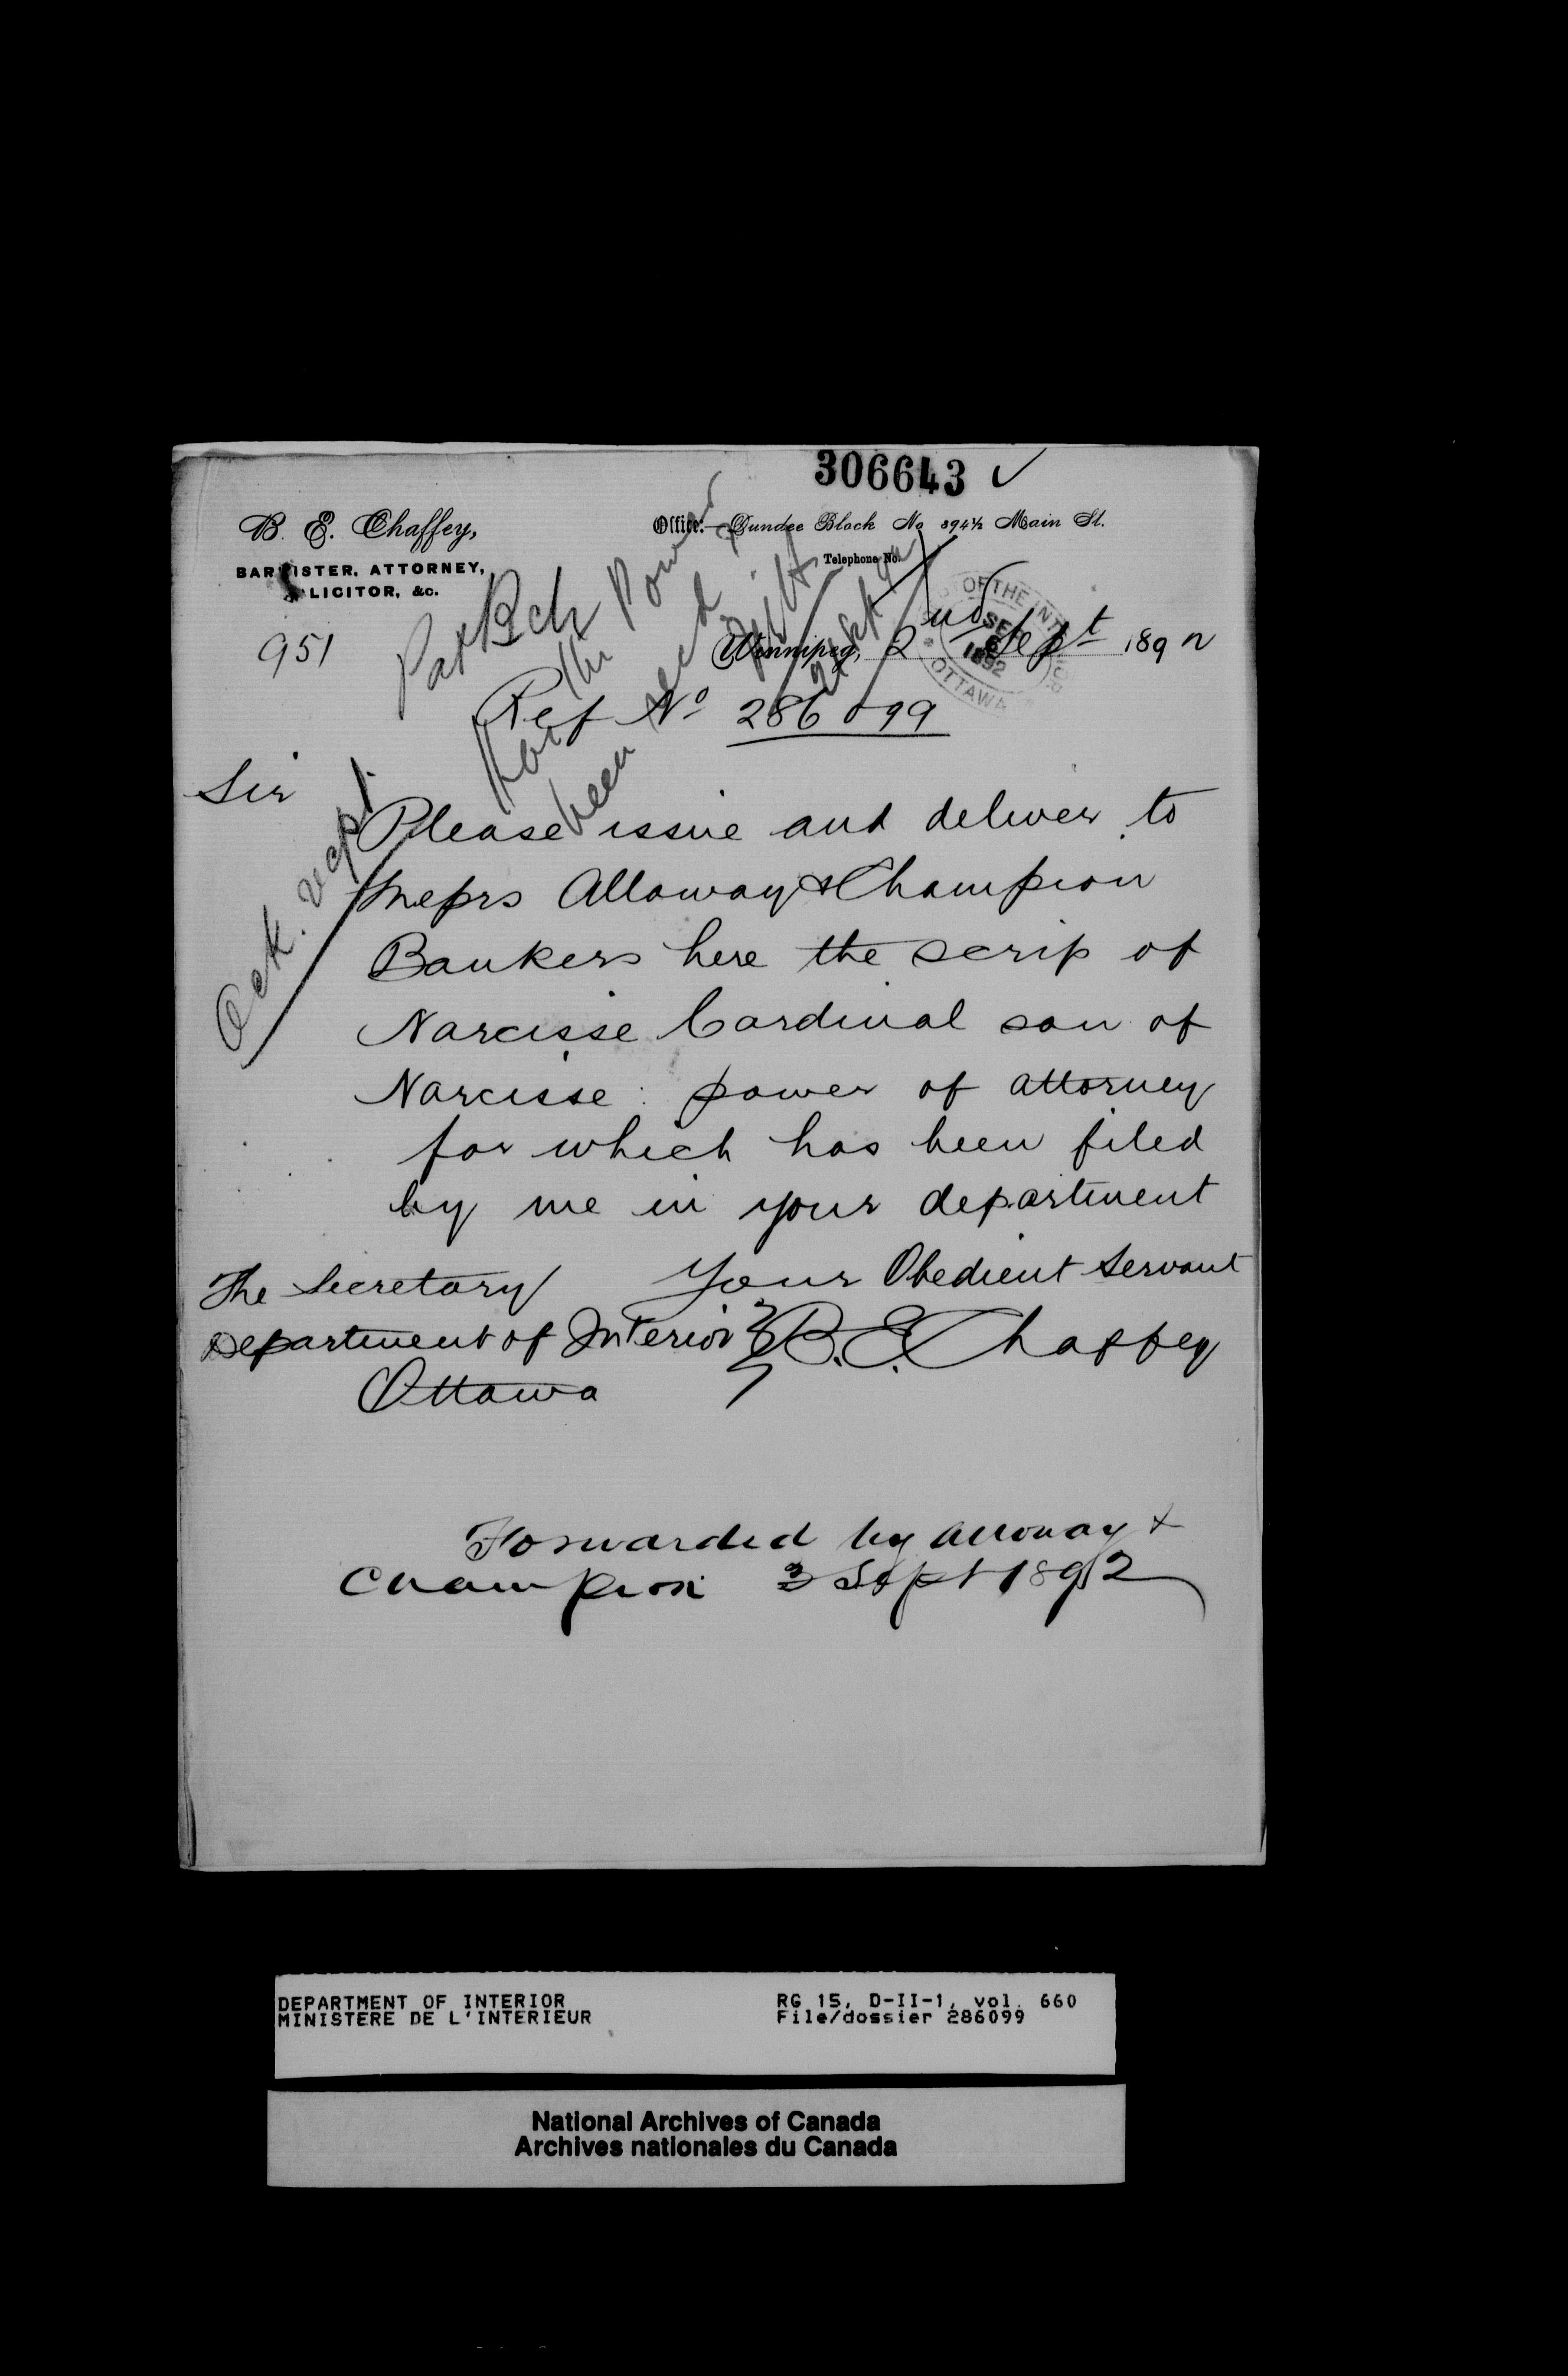 306643 ✓
B. E. Chaffey,
Office:—Dundee Block No 394½ Main St.
BARRISTER, ATTORNEY,
Telephone No.
LICITOR, &c.
951
Winnipeg, 2nd Sept 1892
OF THE INTERIOR
SEP
1892
OTTAWA
Pat Bch
the Power
has
been recd
Ref No 286099
Ack. recpt.
Sir
Please issue and deliver to
Messrs Alloway & Champion
Bankers here the scrip of
Narcisse Cardinal son of
Narcisse: power of attorney
for which has been filed
by me in your department
Your Obedient Servant
B. E. Chaffey
The Secretary
Department of Interior
Ottawa
Forwarded by Alloway &
Champion 3 Sept 1892
DEPARTMENT OF INTERIOR
MINISTERE DE L'INTERIEUR
RG 15, D-II-1, vol. 660
File/dossier 286099
National Archives of Canada
Archives nationales du Canada